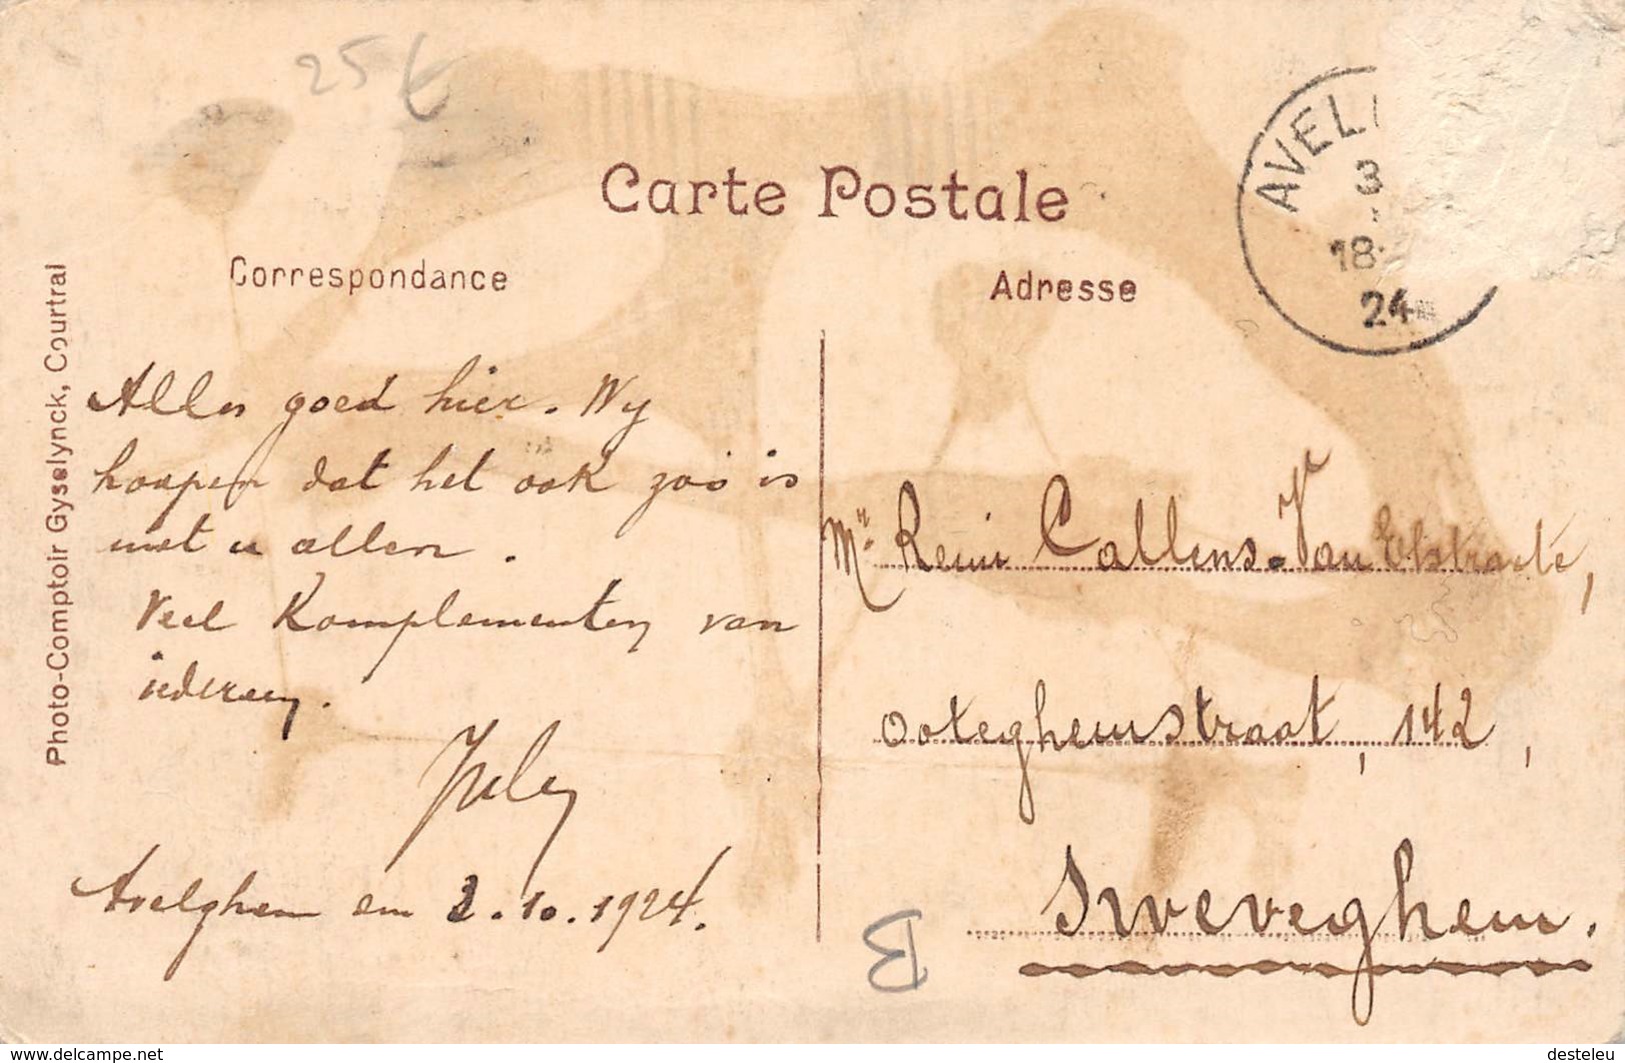 25 €
Carte Postale
Correspondance
Adresse
AVEL
3
18
24
Photo-Comptoir Gysselynck, Courtral
Alles goed hier. Wy
hoopen dat het ook zoo is
met u allen.
Veel Komplementen van
iedereen.
July
Avelghem em 2.10.1924.
Mr. Remi Callens-Van Elstraete,
Ooteghemstraat, 142,
Sweveghem.
B
www.delcampe.net
desteleu